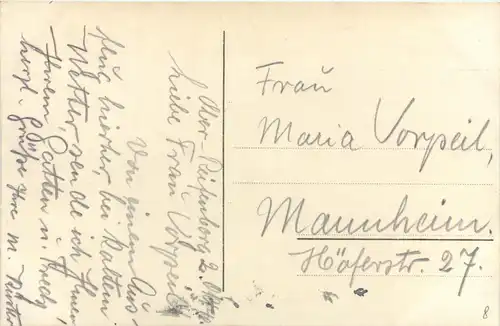 Ober-Reifenberg 2. 
Liebe Frau Vorpeil!
Von einem Aus-
flug hierher, bei kaltem
Wetter, sende ich Ihnen,
Ihrem Gatten u.
herzl. Grüße Ihre M.
Frau
Maria Vorpeil,
Mannheim.
Höferstr. 27.
8